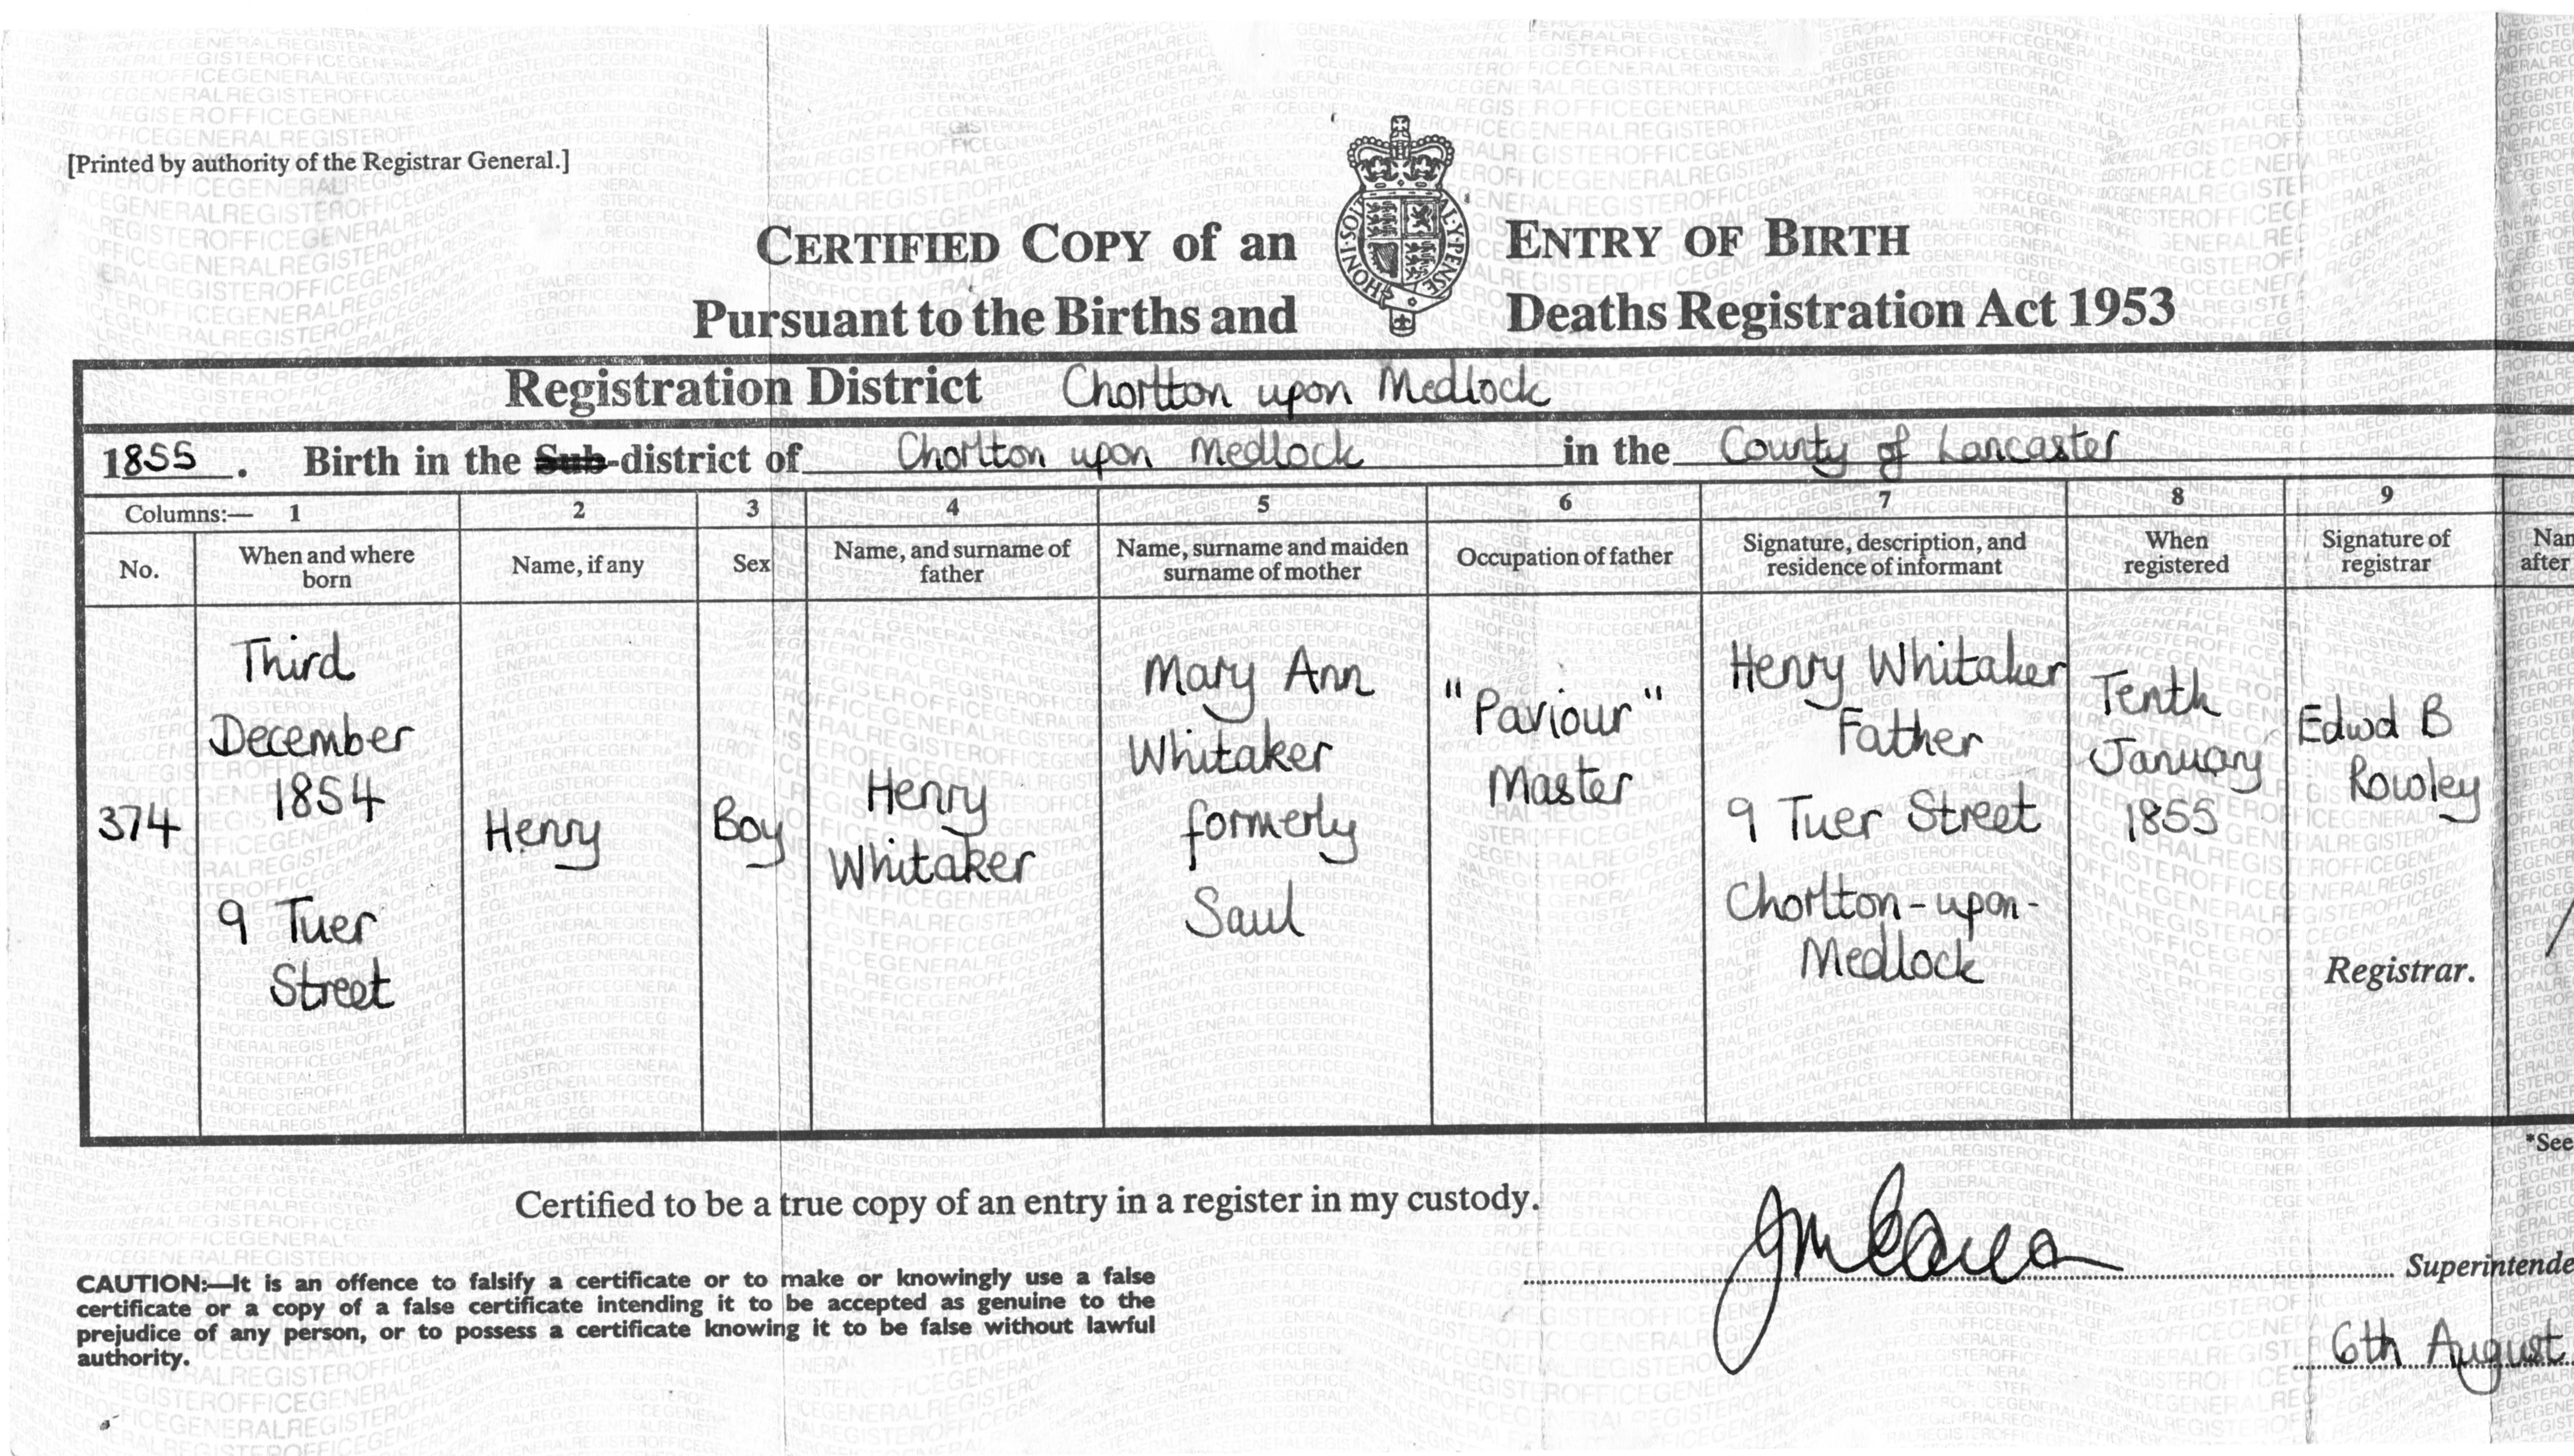 [Printed by authority of the Registrar General.]
CERTIFIED COPY of an ENTRY OF BIRTH
Pursuant to the Births and Deaths Registration Act 1953
HONI·SOI AL·Y·PENSE
Registration District Chorlton upon Medlock
1855. Birth in the Sub-district of Chorlton upon Medlock in the County of Lancaster
Columns:— 1 2 3 4 5 6 7 8 9
No.
When and where
born
Name, if any
Sex
Name, and surname of
father
Name, surname and maiden
surname of mother
Occupation of father
Signature, description, and
residence of informant
When
registered
Signature of
registrar
Nam
after
374
Third
December
1854
9 Tuer
Street
Henry
Boy
Henry
Whitaker
Mary Ann
Whitaker
formerly
Saul
"Paviour"
Master
Henry Whitaker
Father
9 Tuer Street
Chorlton-upon-
Medlock
Tenth
January
1855
Edwd B
Rowley
Registrar.
*See
Certified to be a true copy of an entry in a register in my custody.
Superintende
CAUTION:—It is an offence to falsify a certificate or to make or knowingly use a false
certificate or a copy of a false certificate intending it to be accepted as genuine to the
prejudice of any person, or to possess a certificate knowing it to be false without lawful
authority.
6th August